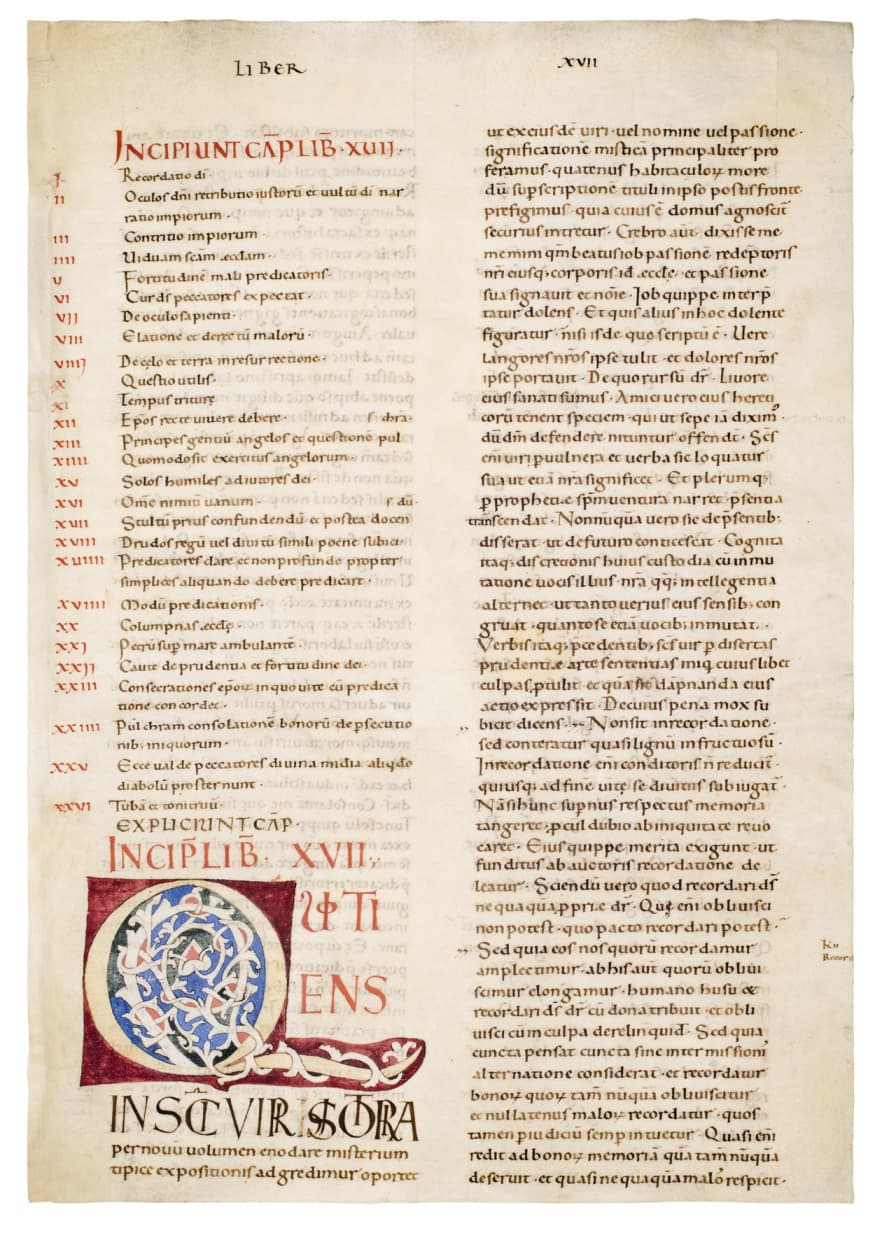 LIBER XVII
INCIPIUNT CAP̄ LIB̄·XVII·
I Recordatio di·
II Oculos dn̄i retributio iustorū et uultū dī nar
ratio impiorum·
III Contritio impiorum·
IIII Uiduam scām æccłam·
V Fortitudinē mali predicatoris·
VI Cur dš peccatores expectat·
VII De oculo sapienti·
VIII Elatione et derectū malorū·
VIIII De celo et terra in resurrectione·
X Questio utilis·
XI Tempus triturę
XII Epōs recte uiuere debere·
XIII Principes gentiū angelos et questionē pul
chra·
XIIII Quomodo sit exercitus angelorum·
XV Solos humiles adiutores dei·
XVI Om̄e nimiū uanum·
XVII Stultū prius confundendū et postea docen
dū·
XVIII Dru dos regū uel diuitū simili poene subici·
XVIIII Predicatores clare et non profunde propter
simplices aliquando debere predicare·
XVIIII Modū predicationis·
XX Columpnas æccłę·
XXI Petrū sup̄ mare ambulantē·
XXII Caute de prudentia et fortitudine dei·
XXIII Consecrationes epōꝝ in quo uite cū predica
tione concordet·
XXIIII Pulchram consolationē bonorū de p̄secutio
nib; iniquorum·
XXV Ecce ualde peccatores diuina mīdia aliqdo
diabolū prosternunt·
XXVI Tuba et tonitruū·
EXPLICIUNT CAP̄·
INCIP̄ LIB̄· XVII·
QUOTI
ENS
IN SCĪ VIRI
per nouū uolumen enodare misterium
tipice expositionis adgredimur oportet
ut ex eiusdē uiri·uel nomine uel passione·
significationē misticā principaliter pro
feramus·quatenus habitaculoꝝ more
dū sup̄scriptionē tituli in ipso postis fronte·
prefigimus·quia cuius ē domus agnoscit̄
securius intretur· Crebro aut̄ dixisse me
memini qm̄ beatus iob passionē redēptoris
nr̄i eiusq; corporis id æccłe·et passione
sua signauit et noīe· Iob quippe interp̄
tatur dolens· Et quis alius in hoc dolente
figuratur·nisi is de quo scriptū ē· Uere
langores nr̄os ipse tulit·et dolores nr̄os
ipse portauit· De quo rursū dr̄· Liuore
eius sanati sumus· Amici uero eius hereti
corū tenent speciem·qui ut sepe iā diximꝰ
dū dm̄ defendere nituntur offendt̄· Scs̄
eni uir ꝑ uulnera et uerba sic loquatur
sua ut etiā nr̄a significet· Et plerumq;
ꝑ propheti·e spm̄ uentura narret·p̄sentia
transcendat· Nonnūquā uero sic de p̄sentib;
disserat·ut de futuro conticescat· Cognita
itaq; discretionis huius custodia cū inmu
tatione uocis illius·nr̄a qq; intellegentia
alternet·ut tanto uerius eius sensib; con
gruat·quanto se etiā uocib; inmutat·
Verbis itaq; p̄cedentib; scs̄ uir ꝑ disertas
prudenti·e arte sententias iniq cuiuslibet
culpas p̄tulit·et quā sit dāpnanda eius
actio expressit· De cuius pena mox su
bicit dicens· Non sit in recordatione·
sed conteratur quasi lignū infructuosū·
In recordatione eni conditoris n̄ reducit̄·
quisq; ad finē uitę se diuitiis subiugat̄·
Nā si hunc sup̄nus respectus memoria
tangeret·ꝓcul dubio ab iniquitate reuo
caret· Eius quippe merita exigunt·ut
funditus ab auctoris recordatione de
leatur· Sciendū uero quod recordari dš
nequaquā ꝓpri·e dr̄· Qui eni obliuisci
non potest·quo pacto recordari potest·
Sed quia eos nos quorū recordamur
amplectimur·ab his aut̄ quorū obliui
scimur elongamur·humano husu et
recordari dš dr̄ cū dona tribuit·et obli
uisci cū in culpa derelinquid· Sed quia
cuncta pensat cuncta sine intermissionī
alternatione considerat·et recordatur
bonoꝝ quoꝝ tam̄ nūquā obliuiscitur
et nullatenus maloꝝ recordatur·quos
tamen ꝑ iudiciū semp̄ intuetur· Quasi eni
redit ad bonoꝝ memoriā quā tam̄ nūquā
deseruit·et quasi nequaquā malos respicit·